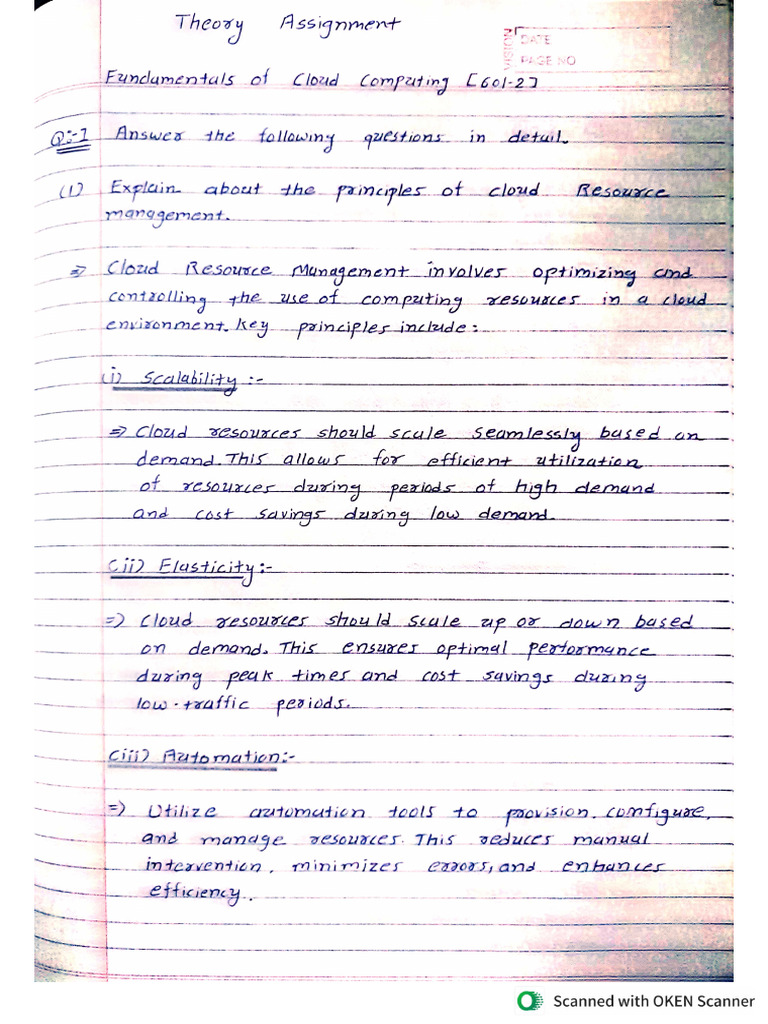 Theory Assignment
VISION
DATE
PAGE NO
Fundamentals of Cloud Computing [601-2]
Q:-1 Answer the following questions in detail.
(1) Explain about the principles of cloud Resource
management.
⇒ Cloud Resource Management involves optimizing and
controlling the use of computing resources in a cloud
environment. Key principles include:
(i) Scalability :-
⇒ Cloud resources should scale seamlessly based on
demand. This allows for efficient utilization
of resources during periods of high demand
and cost savings during low demand.
(ii) Elasticity:-
⇒ Cloud resources should scale up or down based
on demand. This ensures optimal performance
during peak times and cost savings during
low-traffic periods.
(iii) Automation:-
⇒ Utilize automation tools to provision, configure,
and manage resources. This reduces manual
intervention, minimizes errors, and enhances
efficiency.
Scanned with OKEN Scanner